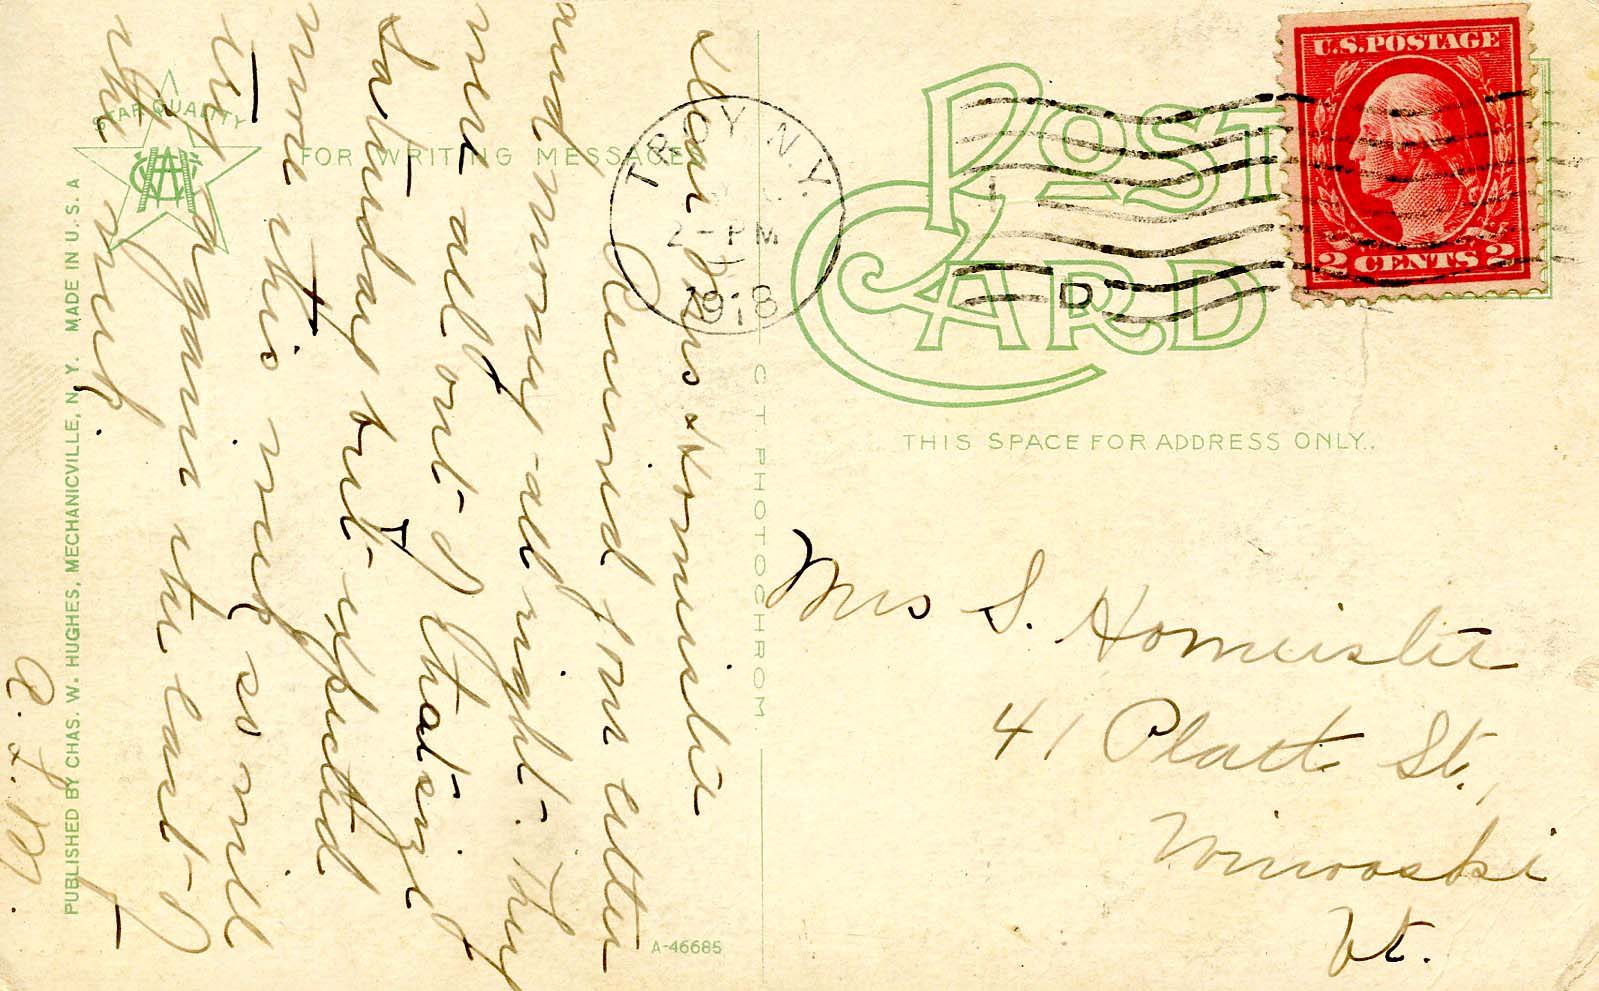 Dear Mrs Homeister
Received your letter
and money all right. They
were all out of that size
Saturday but expected
more this week so will
try again the last of
the week.
A. L. M.
STAR QUALITY
FOR WRITING MESSAGE
PUBLISHED BY CHAS. W. HUGHES, MECHANICVILLE, N. Y. MADE IN U. S. A
C T PHOTOCHROM
A-46685
TROY, N.Y.
2-PM
1918
D
U.S. POSTAGE
2 CENTS 2
POST
CARD
THIS SPACE FOR ADDRESS ONLY.
Mrs S. Homeister
41 Platt St.,
Winooski
Vt.